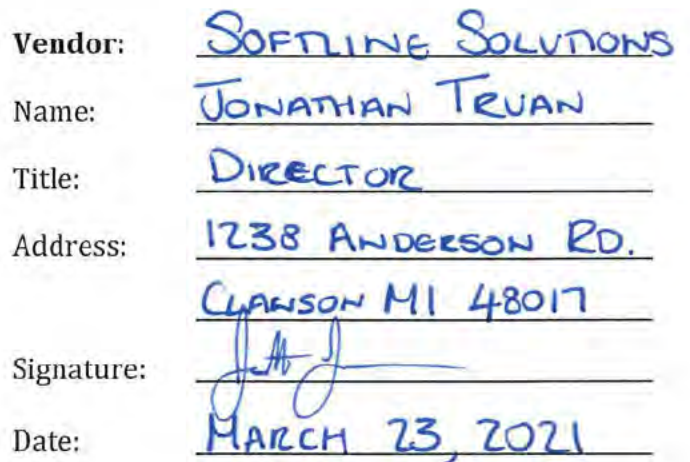 Vendor: SOFTLINE SOLUTIONS
Name: JONATHAN TRUAN
Title: DIRECTOR
Address: 1238 ANDERSON RD.
CLAWSON MI 48017
Signature:
Date: MARCH 23, 2021